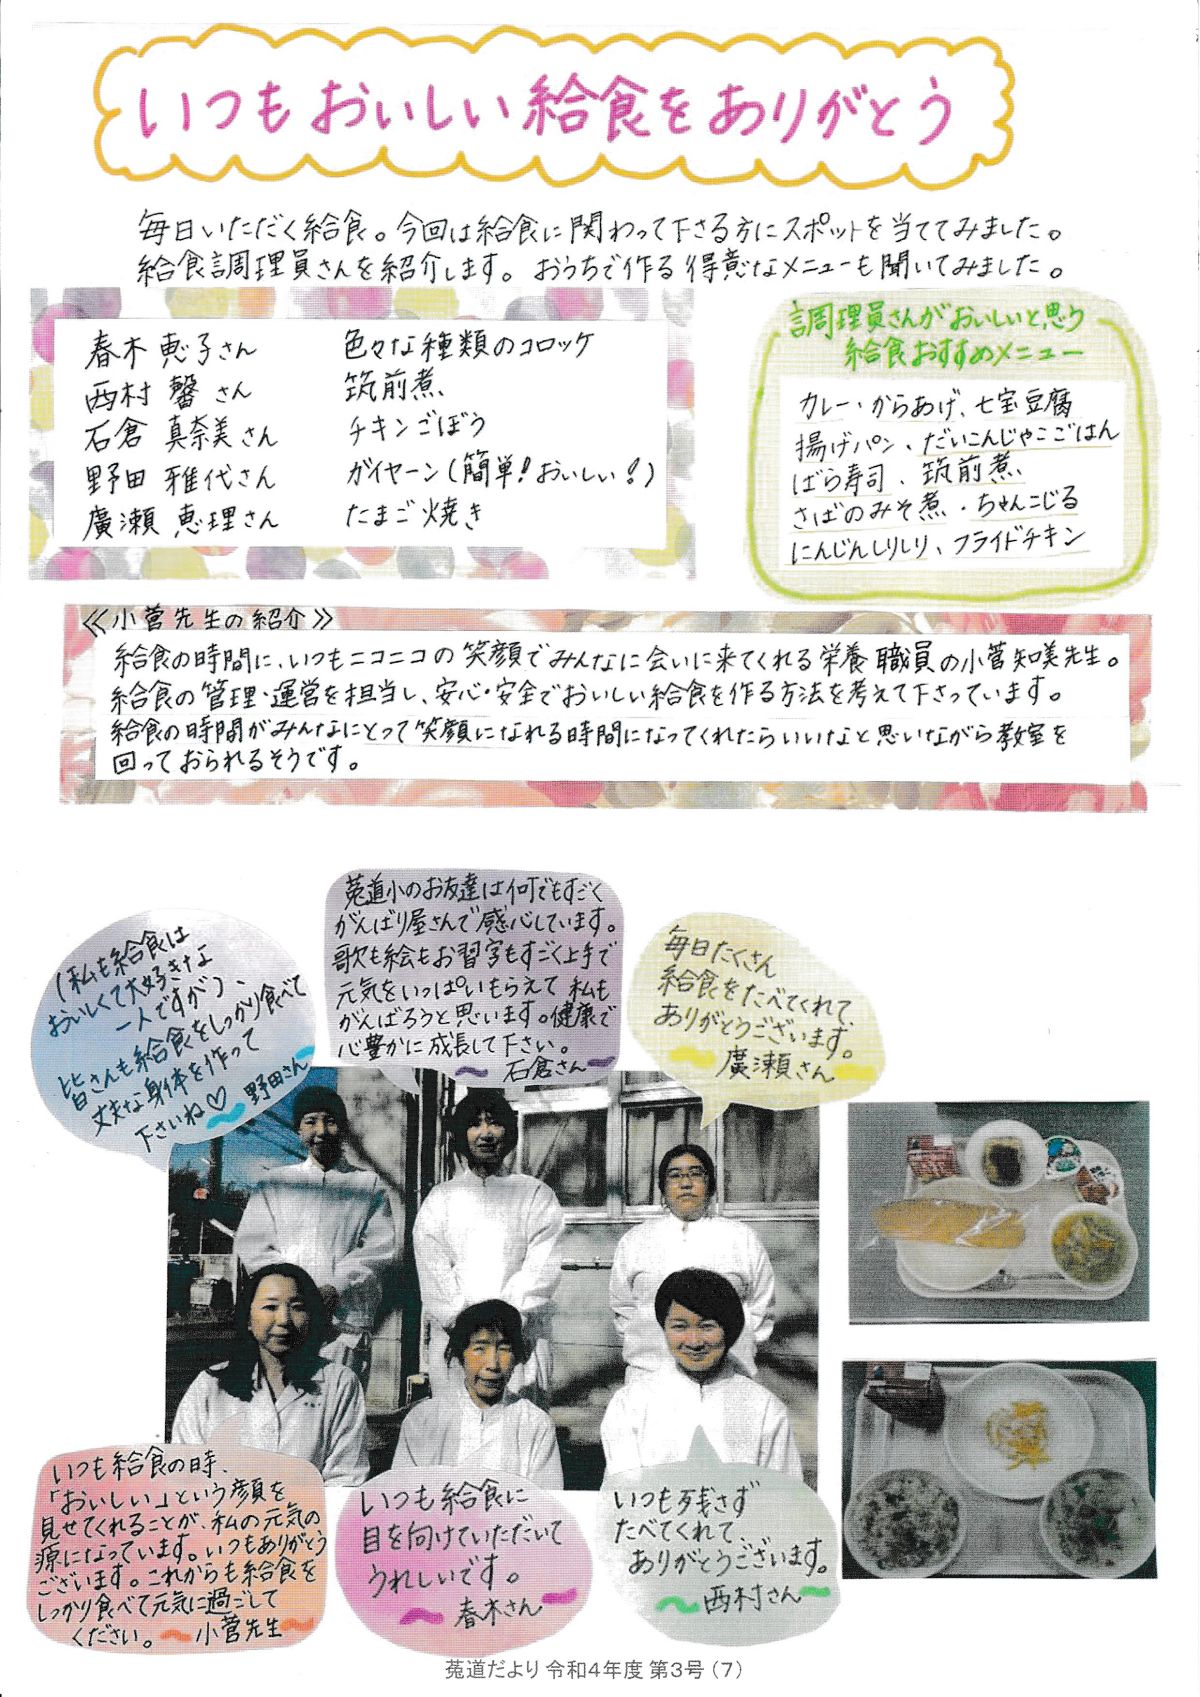 いつもおいしい給食をありがとう
毎日いただく給食。今回は給食に関わって下さる方にスポットを当ててみました。
給食調理員さんを紹介します。おうちで作る得意なメニューも聞いてみました。
春木 恵子さん 色々な種類のコロッケ
西村 馨さん 筑前煮
石倉 真奈美さん チキンごぼう
野田 雅代さん ガイヤーン(簡単!おいしい!)
廣瀬 恵理さん たまご焼き
調理員さんがおいしいと思う
給食おすすめメニュー
カレー・からあげ、七宝豆腐
揚げパン、だいこんじゃこごはん
ばら寿司、筑前煮
さばのみそ煮・ちゃんこじる
にんじんしりしり、フライドチキン
≪小菅先生の紹介≫
給食の時間に、いつもニコニコの笑顔でみんなに会いに来てくれる栄養職員の小菅知美先生。
給食の管理・運営を担当し、安心・安全でおいしい給食を作る方法を考えて下さっています。
給食の時間がみんなにとって笑顔になれる時間になってくれたらいいなと思いながら教室を
回っておられるそうです。
(私も給食は
おいしくて大好きな
一人ですが)、
皆さんも給食をしっかり食べて
丈夫な身体を作って
下さいね♡ 野田さん
菟道小のお友達は何でもすごく
がんばり屋さんで感心しています。
歌も絵もお習字もすごく上手で
元気をいっぱいもらえて私も
がんばろうと思います。健康で
心豊かに成長して下さい。
石倉さん
毎日たくさん
給食をたべてくれて、
ありがとうございます。
廣瀬さん
いつも給食の時、
「おいしい」という顔を
見せてくれることが、私の元気の
源になっています。いつもありがとう
ございます。これからも給食を
しっかり食べて元気に過ごして
ください。 小菅先生
いつも給食に
目を向けていただいて
うれしいです。
春木さん
いつも残さず
たべてくれて、
ありがとうございます。
西村さん
菟道だより 令和4年度 第3号 (7)